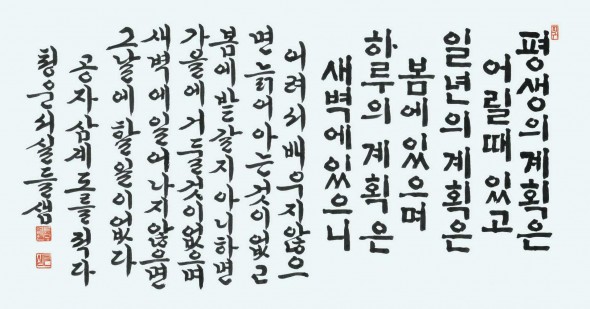 평생의 계획은
어릴때 있고
일년의 계획은
봄에 있으며
하루의 계획은
새벽에 있으니
어려서 배우지 않으
면 늙어 아는것이 없고
봄에 밭갈지 아니하면
가을에 거둘것이 없으며
새벽에 일어나지 않으면
그날에 할일이 없다
공자삼계도를 적다
청운서실 들샘